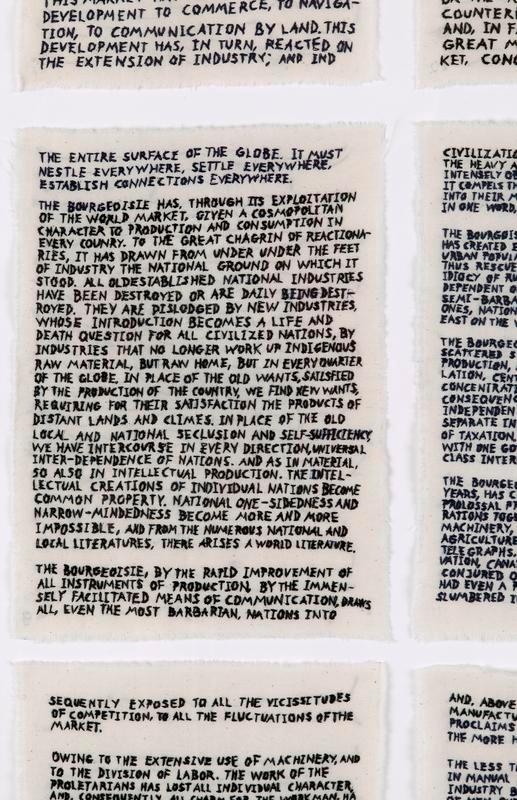 THIS MARKET HAS
DEVELOPMENT TO COMMERCE, TO NAVIGA-
TION, TO COMMUNICATION BY LAND. THIS
DEVELOPMENT HAS, IN TURN, REACTED ON
THE EXTENSION OF INDUSTRY; AND IND
COUNTER
AND, IN F
GREAT M
KET, CONC
THE ENTIRE SURFACE OF THE GLOBE. IT MUST
NESTLE EVERYWHERE, SETTLE EVERYWHERE,
ESTABLISH CONNECTIONS EVERYWHERE.
THE BOURGEOISIE HAS, THROUGH ITS EXPLOITATION
OF THE WORLD MARKET, GIVEN A COSMOPOLITAN
CHARACTER TO PRODUCTION AND CONSUMPTION IN
EVERY COUNRY. TO THE GREAT CHAGRIN OF REACTIONA-
RIES, IT HAS DRAWN FROM UNDER UNDER THE FEET
OF INDUSTRY THE NATIONAL GROUND ON WHICH IT
STOOD. ALL OLDESTABLISHED NATIONAL INDUSTRIES
HAVE BEEN DESTROYED OR ARE DAILY BEING DEST-
ROYED. THEY ARE DISLODGED BY NEW INDUSTRIES,
WHOSE INTRODUCTION BECOMES A LIFE AND
DEATH QUESTION FOR ALL CIVILIZED NATIONS, BY
INDUSTRIES THAT NO LONGER WORK UP INDIGENOUS
RAW MATERIAL, BUT RAW HOME, BUT IN EVERY QUARTER
OF THE GLOBE. IN PLACE OF THE OLD WANTS, SAILSFIED
BY THE PRODUCTION OF THE COUNTRY, WE FIND NEW WANTS,
REQUIRING FOR THEIR SATISFACTION THE PRODUCTS OF
DISTANT LANDS AND CLIMES. IN PLACE OF THE OLD
LOCAL AND NATIONAL SECLUSION AND SELF-SUFFICIENCY,
WE HAVE INTERCOURSE IN EVERY DIRECTION, UNIVERSAL
INTER-DEPENDENCE OF NATIONS. AND AS IN MATERIAL,
SO ALSO IN INTELLECTUAL PRODUCTION. THE INTEL-
LECTUAL CREATIONS OF INDIVIDUAL NATIONS BECOME
COMMON PROPERTY. NATIONAL ONE-SIDEDNESS AND
NARROW-MINDEDNESS BECOME MORE AND MORE
IMPOSSIBLE, AND FROM THE NUMEROUS NATIONAL AND
LOCAL LITERATURES, THERE ARISES A WORLD LITERATURE.
THE BOURGEOISIE, BY THE RAPID IMPROVEMENT OF
ALL INSTRUMENTS OF PRODUCTION, BY THE IMMEN-
SELY FACILITATED MEANS OF COMMUNICATION, DRAWS
ALL, EVEN THE MOST BARBARIAN, NATIONS INTO
CIVILIZATIO
THE HEAVY A
INTENSELY OB
IT COMPELS TH
INTO THEIR M
IN ONE WORD,
THE BOURGEOIS
HAS CREATED E
URBAN POPULA
THUS RESCUE
IDIOCY OF RU
DEPENDENT O
SEMI-BARBA
ONES, NATION
EAST ON THE W
THE BOURGEO
SCATTERED S
PRODUCTION,
LATION, CENT
CONCENTRATE
CONSEQUENC
INDEPENDEN
SEPARATE IN
OF TAXATION,
WITH ONE GO
CLASS INTER
THE BOURGEO
YEARS, HAS C
PROLOSSAL PR
RATIONS TOGE
MACHINERY,
AGRICULTURE
TELEGRAPHS,
VATION, CANA
CONJURED O
HAD EVEN A P
SLUMBERED I
SEQUENTLY EXPOSED TO ALL THE VICISSITUDES
OF COMPETITION, TO ALL THE FLUCTUATIONS OF THE
MARKET.
OWING TO THE EXTENSIVE USE OF MACHINERY, AND
TO THE DIVISION OF LABOR. THE WORK OF THE
PROLETARIANS HAS LOST ALL INDIVIDUAL CHARACTER,
AND, CONSEQUENTLY, ALL CHARM FOR THE WORKMAN. HA
AND, ABOVE
MANUFACTU
PROCLAIMS
THE MORE H
THE LESS T
IN MANUAL
INDUSTRY B